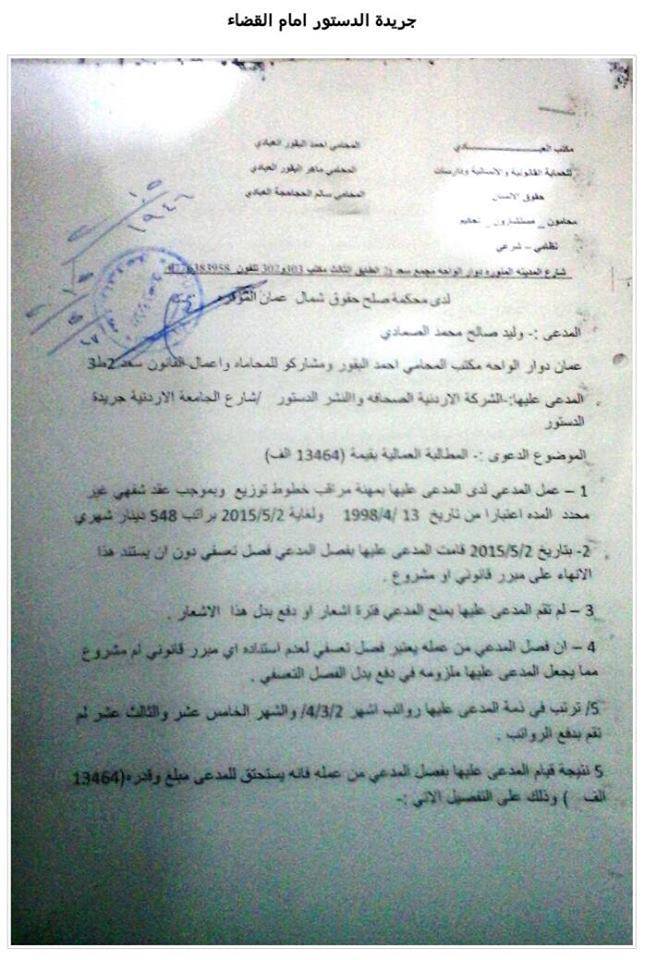 جريدة الدستور امام القضاء
مكتب العبـــــــــــادي
المحامي احمد البقور العبادي
للحماية القانونية والانسانية ودارسات
المحامي ماهر البقور العبادي
حقوق الانسان
المحامي سالم الحجاحجة العبادي
محامون _ مستشارون _ تحكيم
نظامي – شرعي
شارع المدينه المنوره دوار الواحه مجمع سعد 2 الطابق الثالث مكتب 303و302 تلفون
لدى محكمة صلح حقوق شمال عمان الموقره
المدعى :- وليد صالح محمد الصمادي
عمان دوار الواحه مكتب المحامي احمد البقور ومشاركو للمحاماه واعمال القانون سعد 2ط3
المدعى عليها:-الشركة الاردنية الصحافه والنشر الدستور /شارع الجامعة الاردنية جريدة
الدستور
الموضوع الدعوى :- المطالبة العمالية بقيمة (13464 الف)
1 – عمل المدعي لدى المدعى عليها بمهنة مراقب خطوط توزيع وبموجب عقد شفهي غير
محدد المده اعتبارا من تاريخ 13 /1998/4 ولغاية 2015/5/2 براتب 548 دينار شهري
2- بتاريخ 2015/5/2 قامت المدعى عليها بفصل المدعي فصل تعسفي دون ان يستند هذا
الانهاء على مبرر قانوني او مشروع .
3 – لم تقم المدعى عليها بمنح المدعي فترة اشعار او دفع بدل هذا الاشعار .
4 – ان فصل المدعي من عمله يعتبر فصل تعسفي لعدم استناده اي مبرر قانوني ام مشروع
مما يجعل المدعى عليها ملزومه في دفع بدل الفصل التعسفي .
5/ ترتب في ذمة المدعى عليها رواتب اشهر 4/3/2/ والشهر الخامس عشر والثالث عشر لم
تقم بدفع الرواتب .
5 نتيجة قيام المدعى عليها بفصل المدعي من عمله فانه يستحتق للمدعى مبلغ وقدره(13464
الف ) وذلك على التفصيل الاتي :-